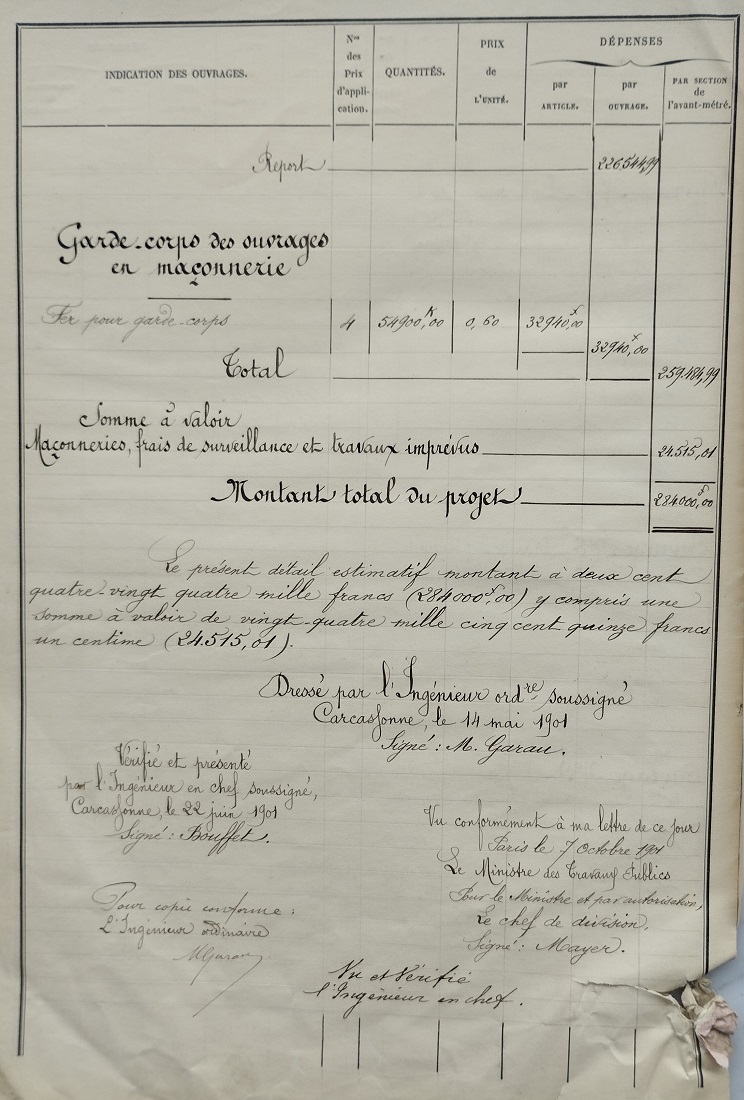 INDICATION DES OUVRAGES.
Nos des Prix d'appli-cation.
QUANTITÉS.
PRIX de L'UNITÉ.
DÉPENSES
par ARTICLE.
par OUVRAGE.
PAR SECTION de l'avant-métré.
Report 226.544,99
Garde-corps des ouvrages
en maçonnerie
Fer pour garde-corps 4 54900K,00 0,60 32940f,00
32940f,00
Total 259.484,99
Somme à valoir
Maçonneries, frais de surveillance et travaux imprévus 24.515,01
Montant total du projet 284000f,00
Le présent détail estimatif montant à deux cent
quatre-vingt quatre mille francs (284000f,00) y compris une
somme à valoir de vingt-quatre mille cinq cent quinze francs
un centime (24.515,01).
Dressé par l'Ingénieur ordre soussigné
Carcassonne, le 14 mai 1901
Signé : M. Garau.
Vérifié et présenté
par l'Ingénieur en chef soussigné,
Carcassonne, le 22 juin 1901
Signé : Bouffet.
Vu conformément à ma lettre de ce jour
Paris le 7 Octobre 1901
Le Ministre des Travaux Publics
Pour le Ministre et par autorisation,
Le chef de division.
Signé : Mayer.
Pour copie conforme :
L'Ingénieur ordinaire
MGarau
Vu et Vérifié
l'Ingénieur en chef.